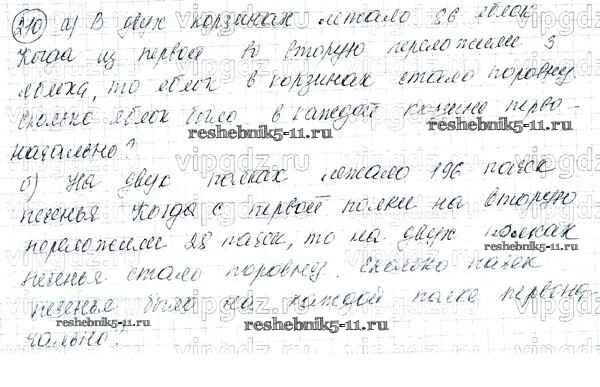 210 а) В двух корзинах лежало 86 яблок
Когда из первой во вторую переложили 3
яблока, то яблок в корзинах стало поровну.
Сколько яблок было в каждой корзине перво-
reshebnik5-11.ru reshebnik5-11.ru
начально?
б) На двух полках лежало 196 пачек
печенья. Когда с первой полки на вторую
переложили 28 пачек, то на двух полках
reshebnik5-11.ru
печенья стало поровну. Сколько пачек
печенья было на каждой полке первона
reshebnik5-11.ru reshebnik5-11.ru
чально?